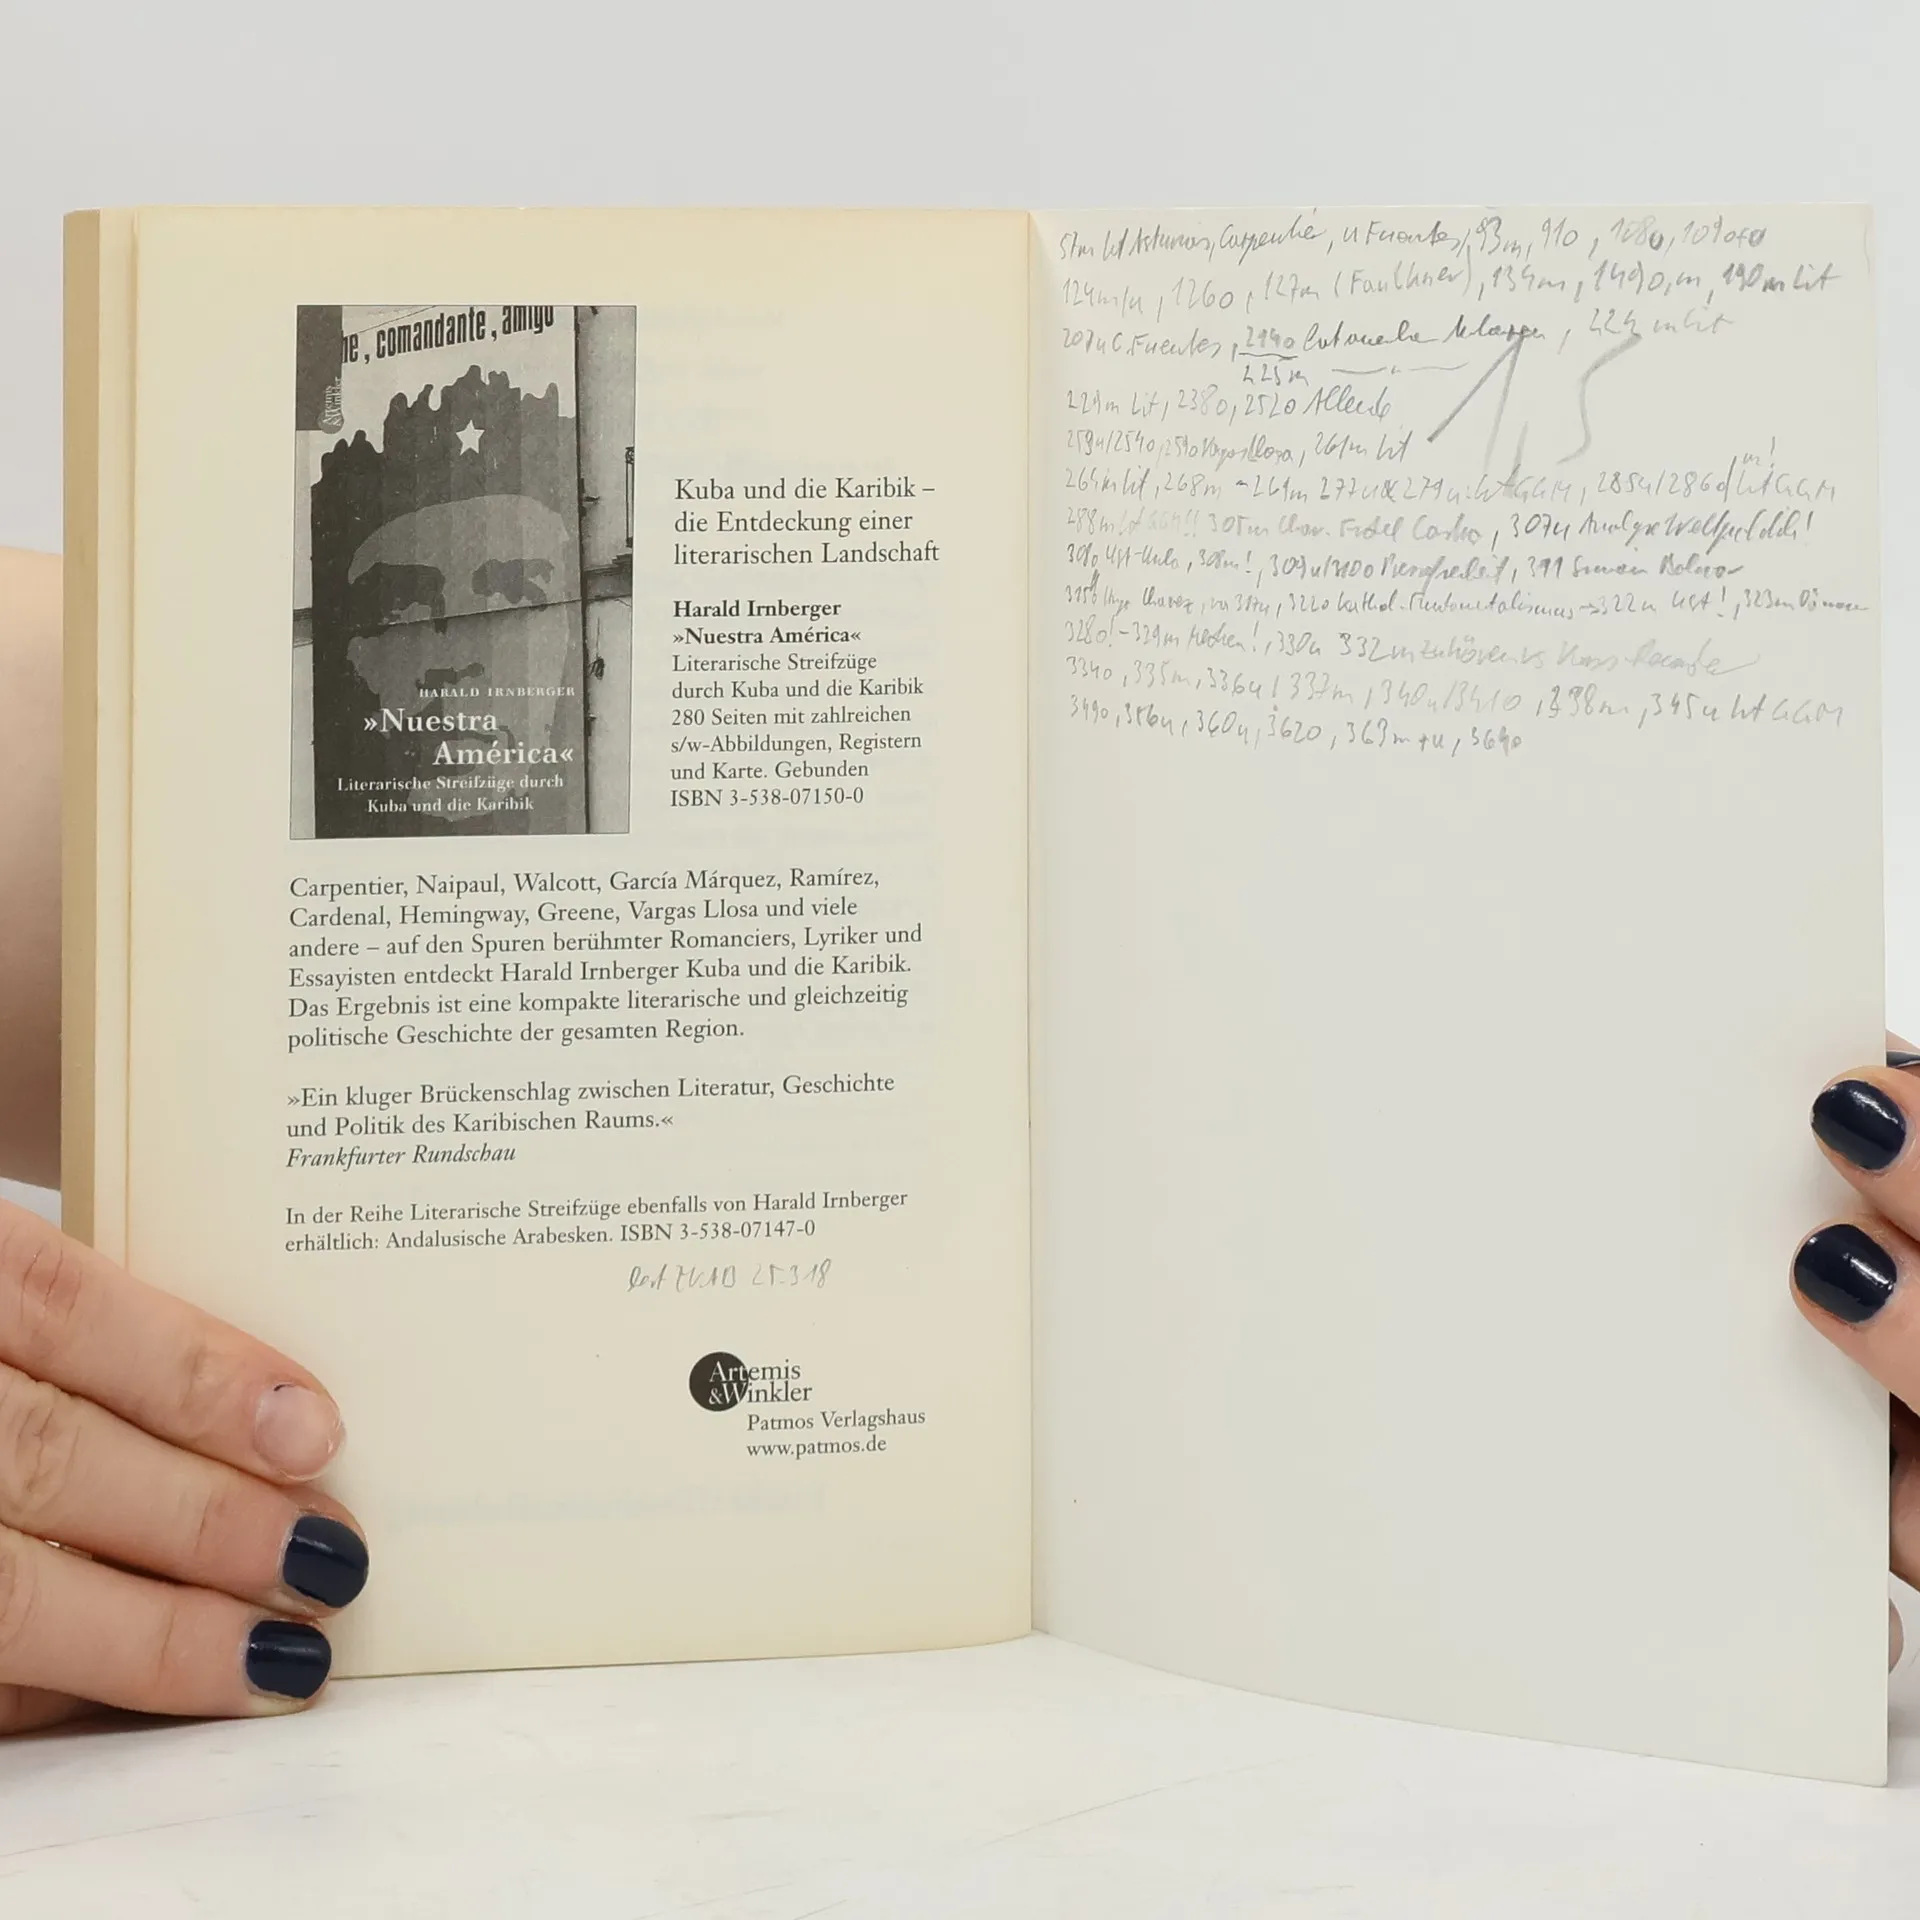 he, comandante, amigo
Artemis
&Winkler
HARALD IRNBERGER
»Nuestra
América«
Literarische Streifzüge durch
Kuba und die Karibik
Kuba und die Karibik –
die Entdeckung einer
literarischen Landschaft
Harald Irnberger
»Nuestra América«
Literarische Streifzüge
durch Kuba und die Karibik
280 Seiten mit zahlreichen
s/w-Abbildungen, Registern
und Karte. Gebunden
ISBN 3-538-07150-0
Carpentier, Naipaul, Walcott, García Márquez, Ramírez,
Cardenal, Hemingway, Greene, Vargas Llosa und viele
andere – auf den Spuren berühmter Romanciers, Lyriker und
Essayisten entdeckt Harald Irnberger Kuba und die Karibik.
Das Ergebnis ist eine kompakte literarische und gleichzeitig
politische Geschichte der gesamten Region.
»Ein kluger Brückenschlag zwischen Literatur, Geschichte
und Politik des Karibischen Raums.«
Frankfurter Rundschau
In der Reihe Literarische Streifzüge ebenfalls von Harald Irnberger
erhältlich: Andalusische Arabesken. ISBN 3-538-07147-0
25.3.18
Artemis
&Winkler
Patmos Verlagshaus
www.patmos.de
57m Asturias, Carpentier, u Fuentes, 93m, 91o, 108o, 109o
124m/u, 126o, 127m (Faulkner), 134m, 149o,m, 190m Lit
207u C. Fuentes, 224 m Lit
225m
229m Lit, 238o, 252o Allende
Vargas Llosa, 261m Lit
264m Lit, 268m - 269m 277u 279u GGM, 285u/286o Lit GGM
288m 305m Fidel Castro, 307u Analyse
308m!, 309u/310o 311 Simon Bolivar
Chavez, 322o 322u 323m
328o! - 329m 330u 332m Zuhören vs
334o, 335m, 336u, 337m, 340u/341o, 338m, 345u Lit GGM
349o, 356u, 360u, 362o, 363m+u, 364o